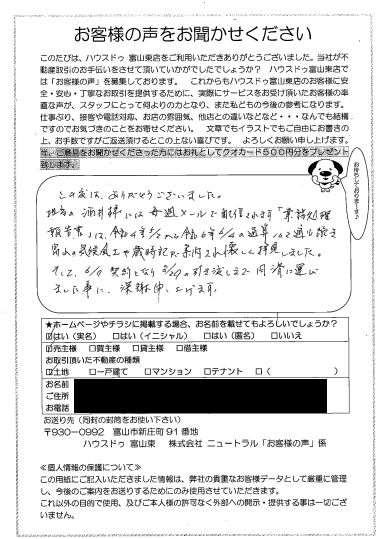 お客様の声をお聞かせください
このたびは、ハウスドゥ 富山東店をご利用いただきありがとうございました。当社が不
動産取引のお手伝いをさせて頂いていかがでしたでしょうか？ ハウスドゥ富山東店で
は「お客様の声」を募集しております。 これからもハウスドゥ富山東店のお客様に安
全・安心・丁寧なお取引を提供するために、実際にサービスをお受け頂いたお客様の率
直な声が、スタッフにとって何よりの力となり、また私どもの今後の参考になります。
仕事ぶり、接客や電話対応、お店の雰囲気、他店との違いなどなど・・・なんでも結構
ですのでお気づきのことをお寄せください。 文章でもイラストでもご自由にお書きの
上、お手数ですがご返送頂けるとこの上ない喜びです。 よろしくお願い申し上げます。
尚、ご意見をお聞かせくださった方にはお礼としてクオカード５００円分をプレゼント
致します。
お待ちしておりま～す♪
この度は、ありがとうございました。
担当の 酒井様には 毎週メールで 配信されます「業務処理
報告書」は、令和4年
富山の気候風土や歳時記 案内され懐しく拝見しました。
そして、 契約となり の引き渡しまで 円滑に運び
ました事に、深謝申し上げます。
★ホームページやチラシに掲載する場合、お名前を載せてもよろしいでしょうか？
☑はい（実名） □はい（イニシャル） □はい（匿名） □いいえ
☑売主様 □買主様 □貸主様 □借主様
お取引頂いた不動産の種類
☑土地 □一戸建て □マンション □テナント □（ ）
お名前
ご住所
お電話
お送り先（同封の封筒をお使い下さい）
〒930-0992 富山市新庄町 91 番地
ハウスドゥ 富山東 株式会社 ニュートラル「お客様の声」係
≪個人情報の保護について≫
この用紙にご記入いただきました情報は、弊社の貴重なお客様データとして厳重に管理
し、今後のご案内をお送りするためにのみ使用させていただきます。
これ以外の目的で使用、及びご本人様の許可なく外部への開示・提供する事は一切ござ
いません。